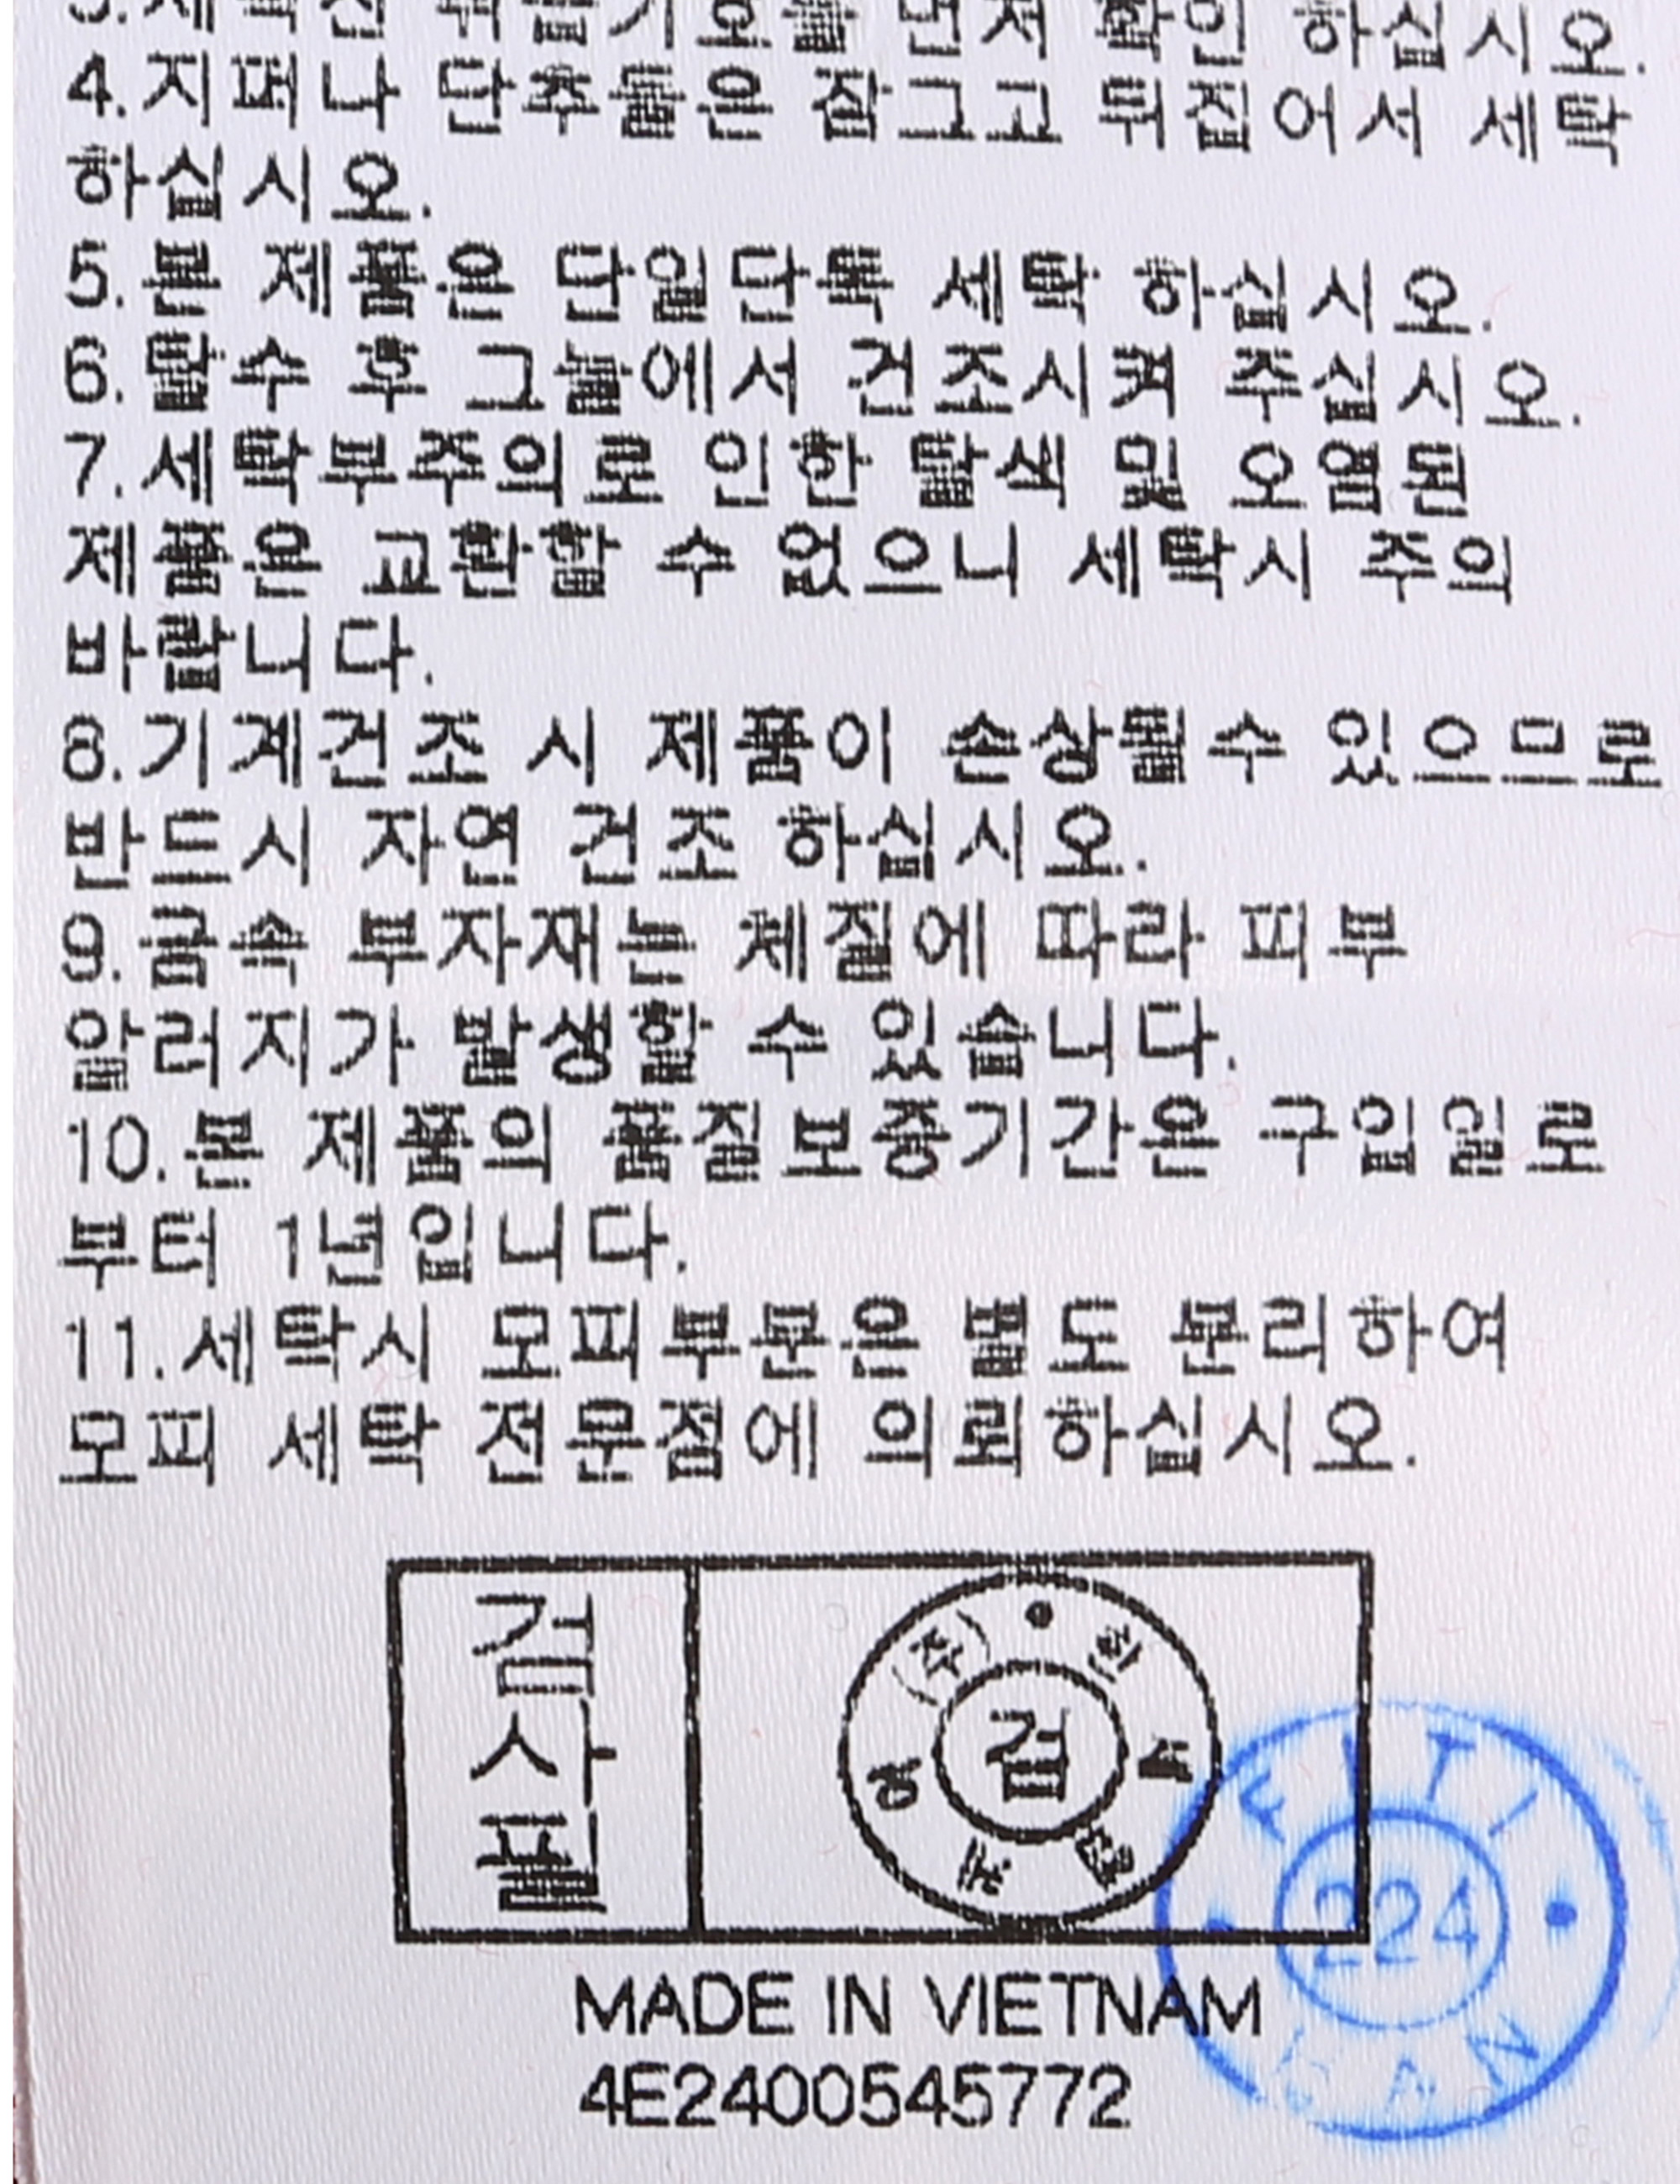 3.세탁전 취급기호를 먼저 확인 하십시오.
4.지퍼나 단추들은 잠그고 뒤집어서 세탁
하십시오.
5.본 제품은 단일단독 세탁 하십시오.
6.탈수 후 그늘에서 건조시켜 주십시오.
7.세탁부주의로 인한 탈색 및 오염된
제품은 교환할 수 없으니 세탁시 주의
바랍니다.
8.기계건조 시 제품이 손상될수 있으므로
반드시 자연 건조 하십시오.
9.금속 부자재는 체질에 따라 피부
알러지가 발생할 수 있습니다.
10.본 제품의 품질보증기간은 구입일로
부터 1년입니다.
11.세탁시 모피부분은 별도 분리하여
모피 세탁 전문점에 의뢰하십시오.
검사필
검
FITI
224
MADE IN VIETNAM
4E2400545772